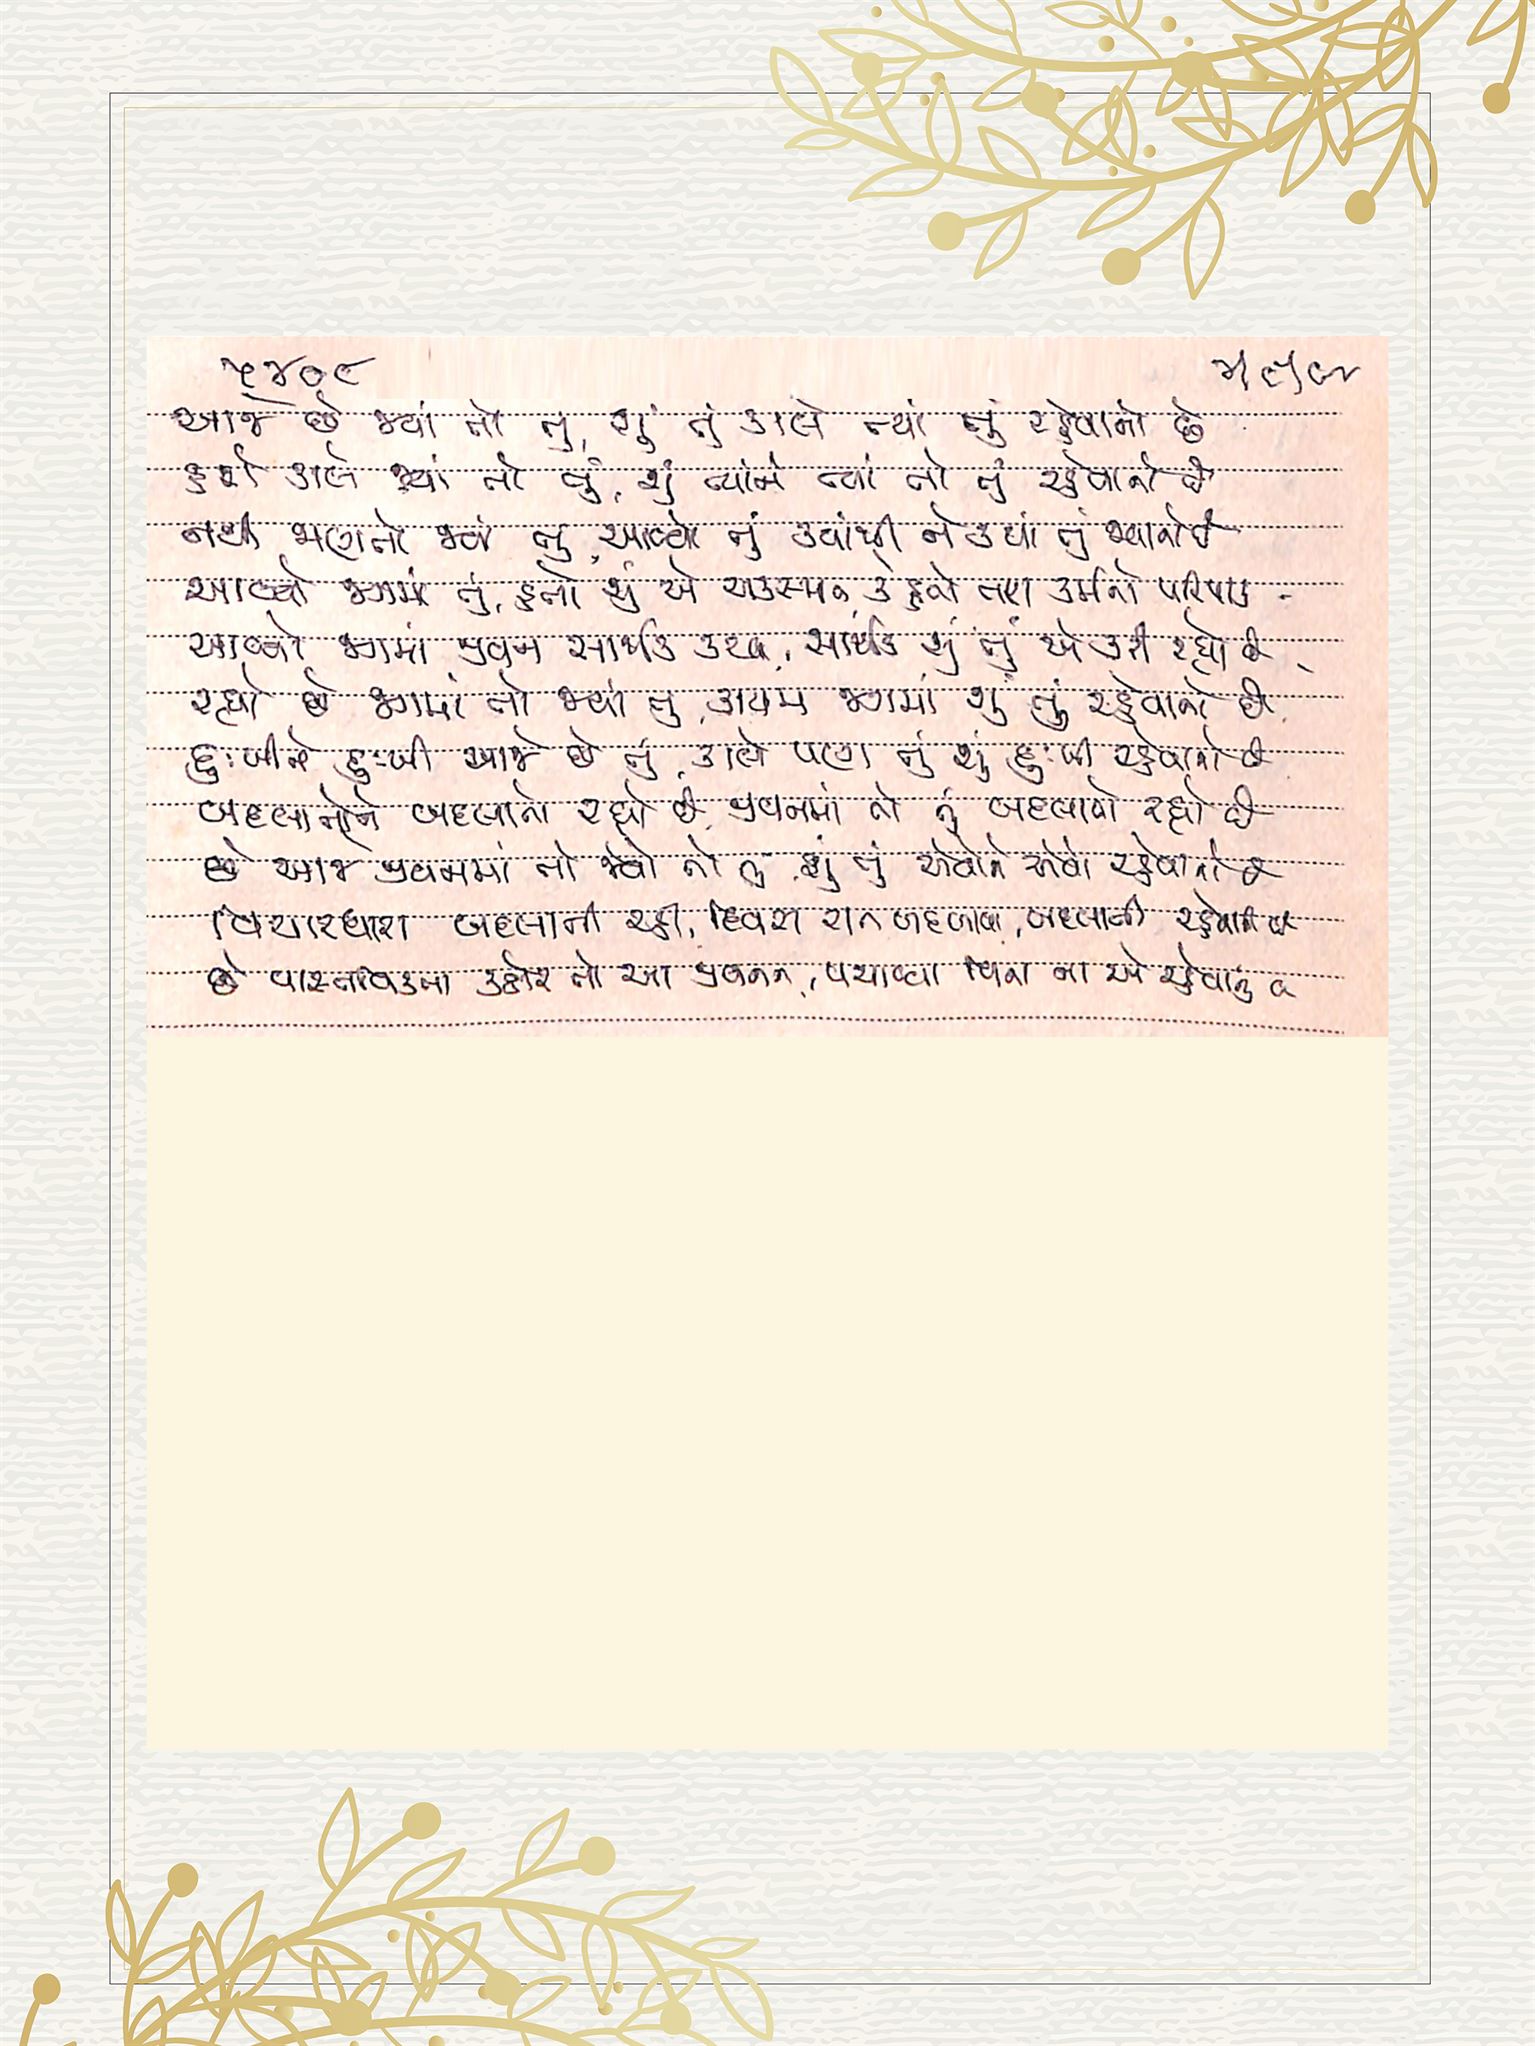 ૫૪૦૯
આજે છે જ્યાં તો તું, શું તું કાલે ત્યાં તું રહેવાનો છે
હશે કાલે જ્યાં તો તું, શું ત્યાંને ત્યાં તો તું રહેવાનો છે
નથી જાણતો જ્યાં તું, આવ્યો તું ક્યાંથી ને ક્યાં તું જવાનો છે
આવ્યો જગમાં તું, હતો શું એ અકસ્માત, કે હતો તારા કર્મનો પરિપાક
આવ્યો જગમાં જીવન સાર્થક કરવા, સાર્થક શું તું એ કરી રહ્યો છે
રહ્યો છે જગમાં તો જ્યાં તું, કાયમ જગમાં શું તું રહેવાનો છે
દુઃખીને દુઃખી આજે છે તું, કાલે પણ તું શું દુઃખી રહેવાનો છે
બદલાતોને બદલાતો રહ્યો છે જીવનમાં તો તું બદલાતો રહ્યો છે
છે આજ જીવનમાં તો જેવો તો તું, શું તું એવોને એવો રહેવાનો છે
વિચારધારા બદલાતી રહી, દિવસ રાત બદલાયા, બદલાતી રહેવાની છે
છે વાસ્તવિકતા કઠોર તો આ જીવનની, પચાવ્યા વિના ના એ રહેવાનું છે